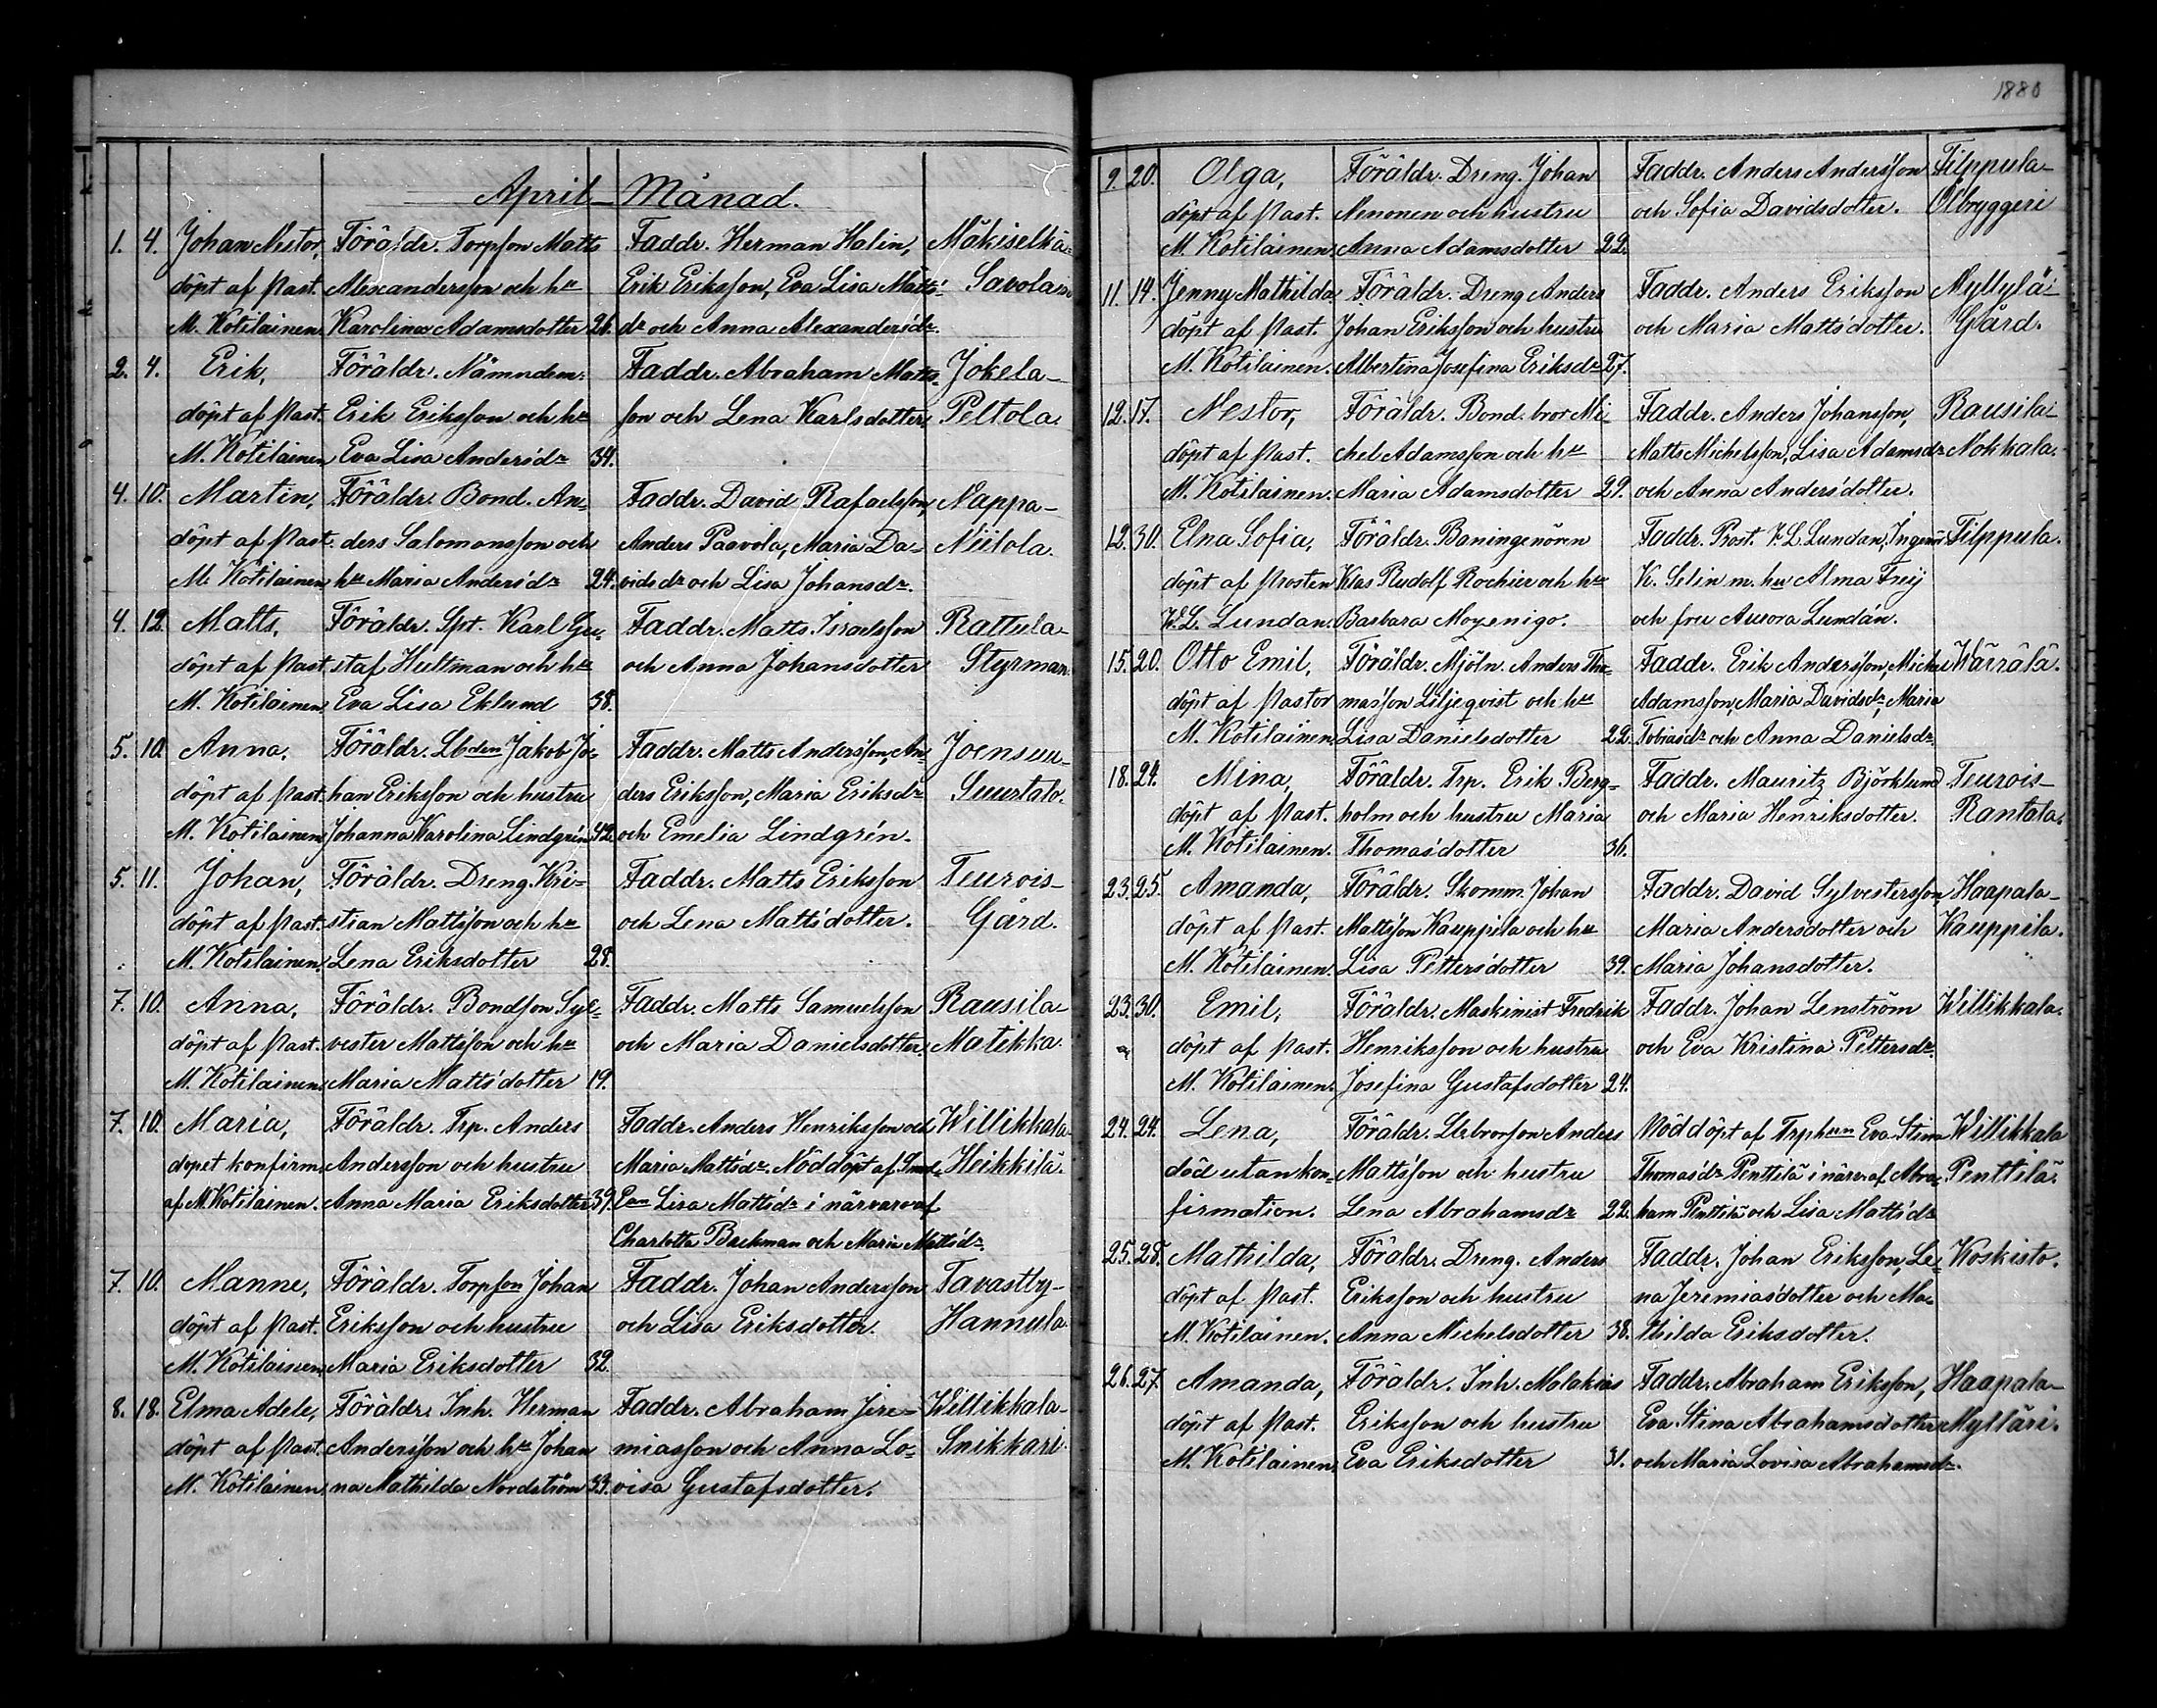 April Månad.
1. 4. Johan Nestor, Föräldr. Torpson Matts Faddr. Herman Halin, Mäkiselkä-
döpt af Past. Alexandersson och hu Erik Eriksson, Eva Lisa Matts- Savolain
M. Kotilainen Karolina Adamsdotter 26. dr och Anna Alexandersdr.
2. 4. Erik, Föräldr. Nämndem. Faddr. Abraham Matts- Jokela-
döpt af Past. Erik Eriksson och hu son och Lena Karlsdotter. Peltola.
M. Kotilainen Eva Lisa Andersdr 34.
4. 10. Martin, Föräldr. Bond. An- Faddr. David Rafaelsson, Nappa-
döpt af Past. ders Salomonsson och Anders Paavola, Maria Da- Niitola.
M. Kotilainen hu Maria Andersdr 24. vidsdr och Lisa Johansdr.
4. 12. Matts, Föräldr. Spt. Karl Gu- Faddr. Matts Israelsson Rattula-
döpt af Past. staf Hultman och hu och Anna Johansdotter Styrman.
M. Kotilainen. Eva Lisa Eklund 38.
5. 10. Anna, Föräldr. Lbden Jakob Jo- Faddr. Matts Andersson, An- Joensuu-
döpt af Past. han Eriksson och hustru ders Eriksson, Maria Eriksdr Suurtalo.
M. Kotilainen Johanna Karolina Lindgrén 42. och Emelia Lindgrén.
5. 11. Johan, Föräldr. Dreng. Kri- Faddr. Matts Eriksson Teurois-
döpt af Past. stian Mattsson och hu och Lena Mattsdotter. Gård.
M. Kotilainen. Lena Eriksdotter 28.
7. 10. Anna, Föräldr. Bondson Syl- Faddr. Matts Samuelsson Rausila-
döpt af Past. vester Mattsson och hu och Maria Danielsdotter. Matikka.
M. Kotilainen. Maria Mattsdotter 19.
7. 10. Maria, Föräldr. Trp. Anders Faddr. Anders Henriksson och Willikkala-
dopet konfirm. Andersson och hustru Maria Mattsdr. Nöddöpt af Heikkilä.
af M. Kotilainen. Anna Maria Eriksdotter 39. Lisa Mattsdr i närvaro af
Charlotta Backman och Maria Mattsdr.
7. 10. Manne, Föräldr. Torpson Johan Faddr. Johan Andersson Tavastby-
döpt af Past. Eriksson och hustru och Lisa Eriksdotter. Hannula.
M. Kotilainen Maria Eriksdotter 32.
8. 18. Elma Adele, Föräldr. Inh. Herman Faddr. Abraham Jere- Willikkala-
döpt af Past. Andersson och hu Johan miasson och Anna Lo- Snikkari.
M. Kotilainen na Mathilda Nordström 33. visa Gustafsdotter.
1880
9. 20. Olga, Föräldr. Dreng. Johan Faddr. Anders Andersson Filppula-
döpt af Past. Nenonen och hustru och Sofia Davidsdotter. Ölbryggeri
M. Kotilainen. Anna Adamsdotter 22.
11. 14. Jenny Mathilda Föräldr. Dreng Anders Faddr. Anders Eriksson Myllylä-
döpt af Past. Johan Eriksson och hustru och Maria Mattsdotter. Gård.
M. Kotilainen. Albertina Josefina Eriksdr 27.
12. 17. Nestor, Föräldr. Bond. bror Mi- Faddr. Anders Johansson, Rausila-
döpt af Past. chel Adamsson och hu Matts Michelsson, Lisa Adamsdr Nokkala.
M. Kotilainen. Maria Adamsdotter 29. och Anna Andersdotter.
12. 30. Elna Sofia, Föräldr. Baningenören Faddr. Prost. W. L. Lundan, Ingeniör Filppula.
döpt af Prosten Klas Rudolf Rochier och hu K. Selin m. hu Alma Frey
W. L. Lundan. Barbara Moyenigo. och fru Aurora Lundán.
15. 20. Otto Emil, Föräldr. Mjöln. Anders Tho- Faddr. Erik Andersson, Michel Wärälä.
döpt af Pastor masson Liljeqvist och hu Adamsson, Maria Davidsdr, Maria
M. Kotilainen. Lisa Danielsdotter 22. Tobiasdr och Anna Danielsdr.
18. 24. Mina, Föräldr. Trp. Erik Berg- Faddr. Mauritz Björklund Teurois-
döpt af Past. holm och hustru Maria och Maria Henriksdotter. Rantala.
M. Kotilainen. Thomasdotter 36.
23. 25. Amanda, Föräldr. Skomm. Johan Faddr. David Sylvestersson, Haapala-
döpt af Past. Mattsson Kauppila och hu Maria Andersdotter och Kauppila.
M. Kotilainen. Lisa Pettersdotter 39. Maria Johansdotter.
23. 30. Emil, Föräldr. Maskinist Fredrik Faddr. Johan Lenström Willikkala.
döpt af Past. Henriksson och hustru och Eva Kristina Pettersdr.
M. Kotilainen. Josefina Gustafsdotter 24.
24. 24. Lena, Föräldr. Anders Nöddöpt af Eva Stina Willikkala
död utan kon- Mattsson och hustru Thomasdr Penttilä i närv. af Abra- Penttilä.
firmation. Lena Abrahamsdr 22. ham Penttilä och Lisa Mattsdr
25. 28. Mathilda, Föräldr. Dreng. Anders Faddr. Johan Eriksson, Le- Koskisto.
döpt af Past. Eriksson och hustru na Jeremiasdotter och Ma-
M. Kotilainen. Anna Michelsdotter 38. thilda Eriksdotter.
26. 27. Amanda, Föräldr. Inh. Malakias Faddr. Abraham Eriksson, Haapala-
döpt af Past. Eriksson och hustru Eva Stina Abrahamsdotter Mylläri.
M. Kotilainen. Eva Eriksdotter 31. och Maria Lovisa Abrahamsdr.